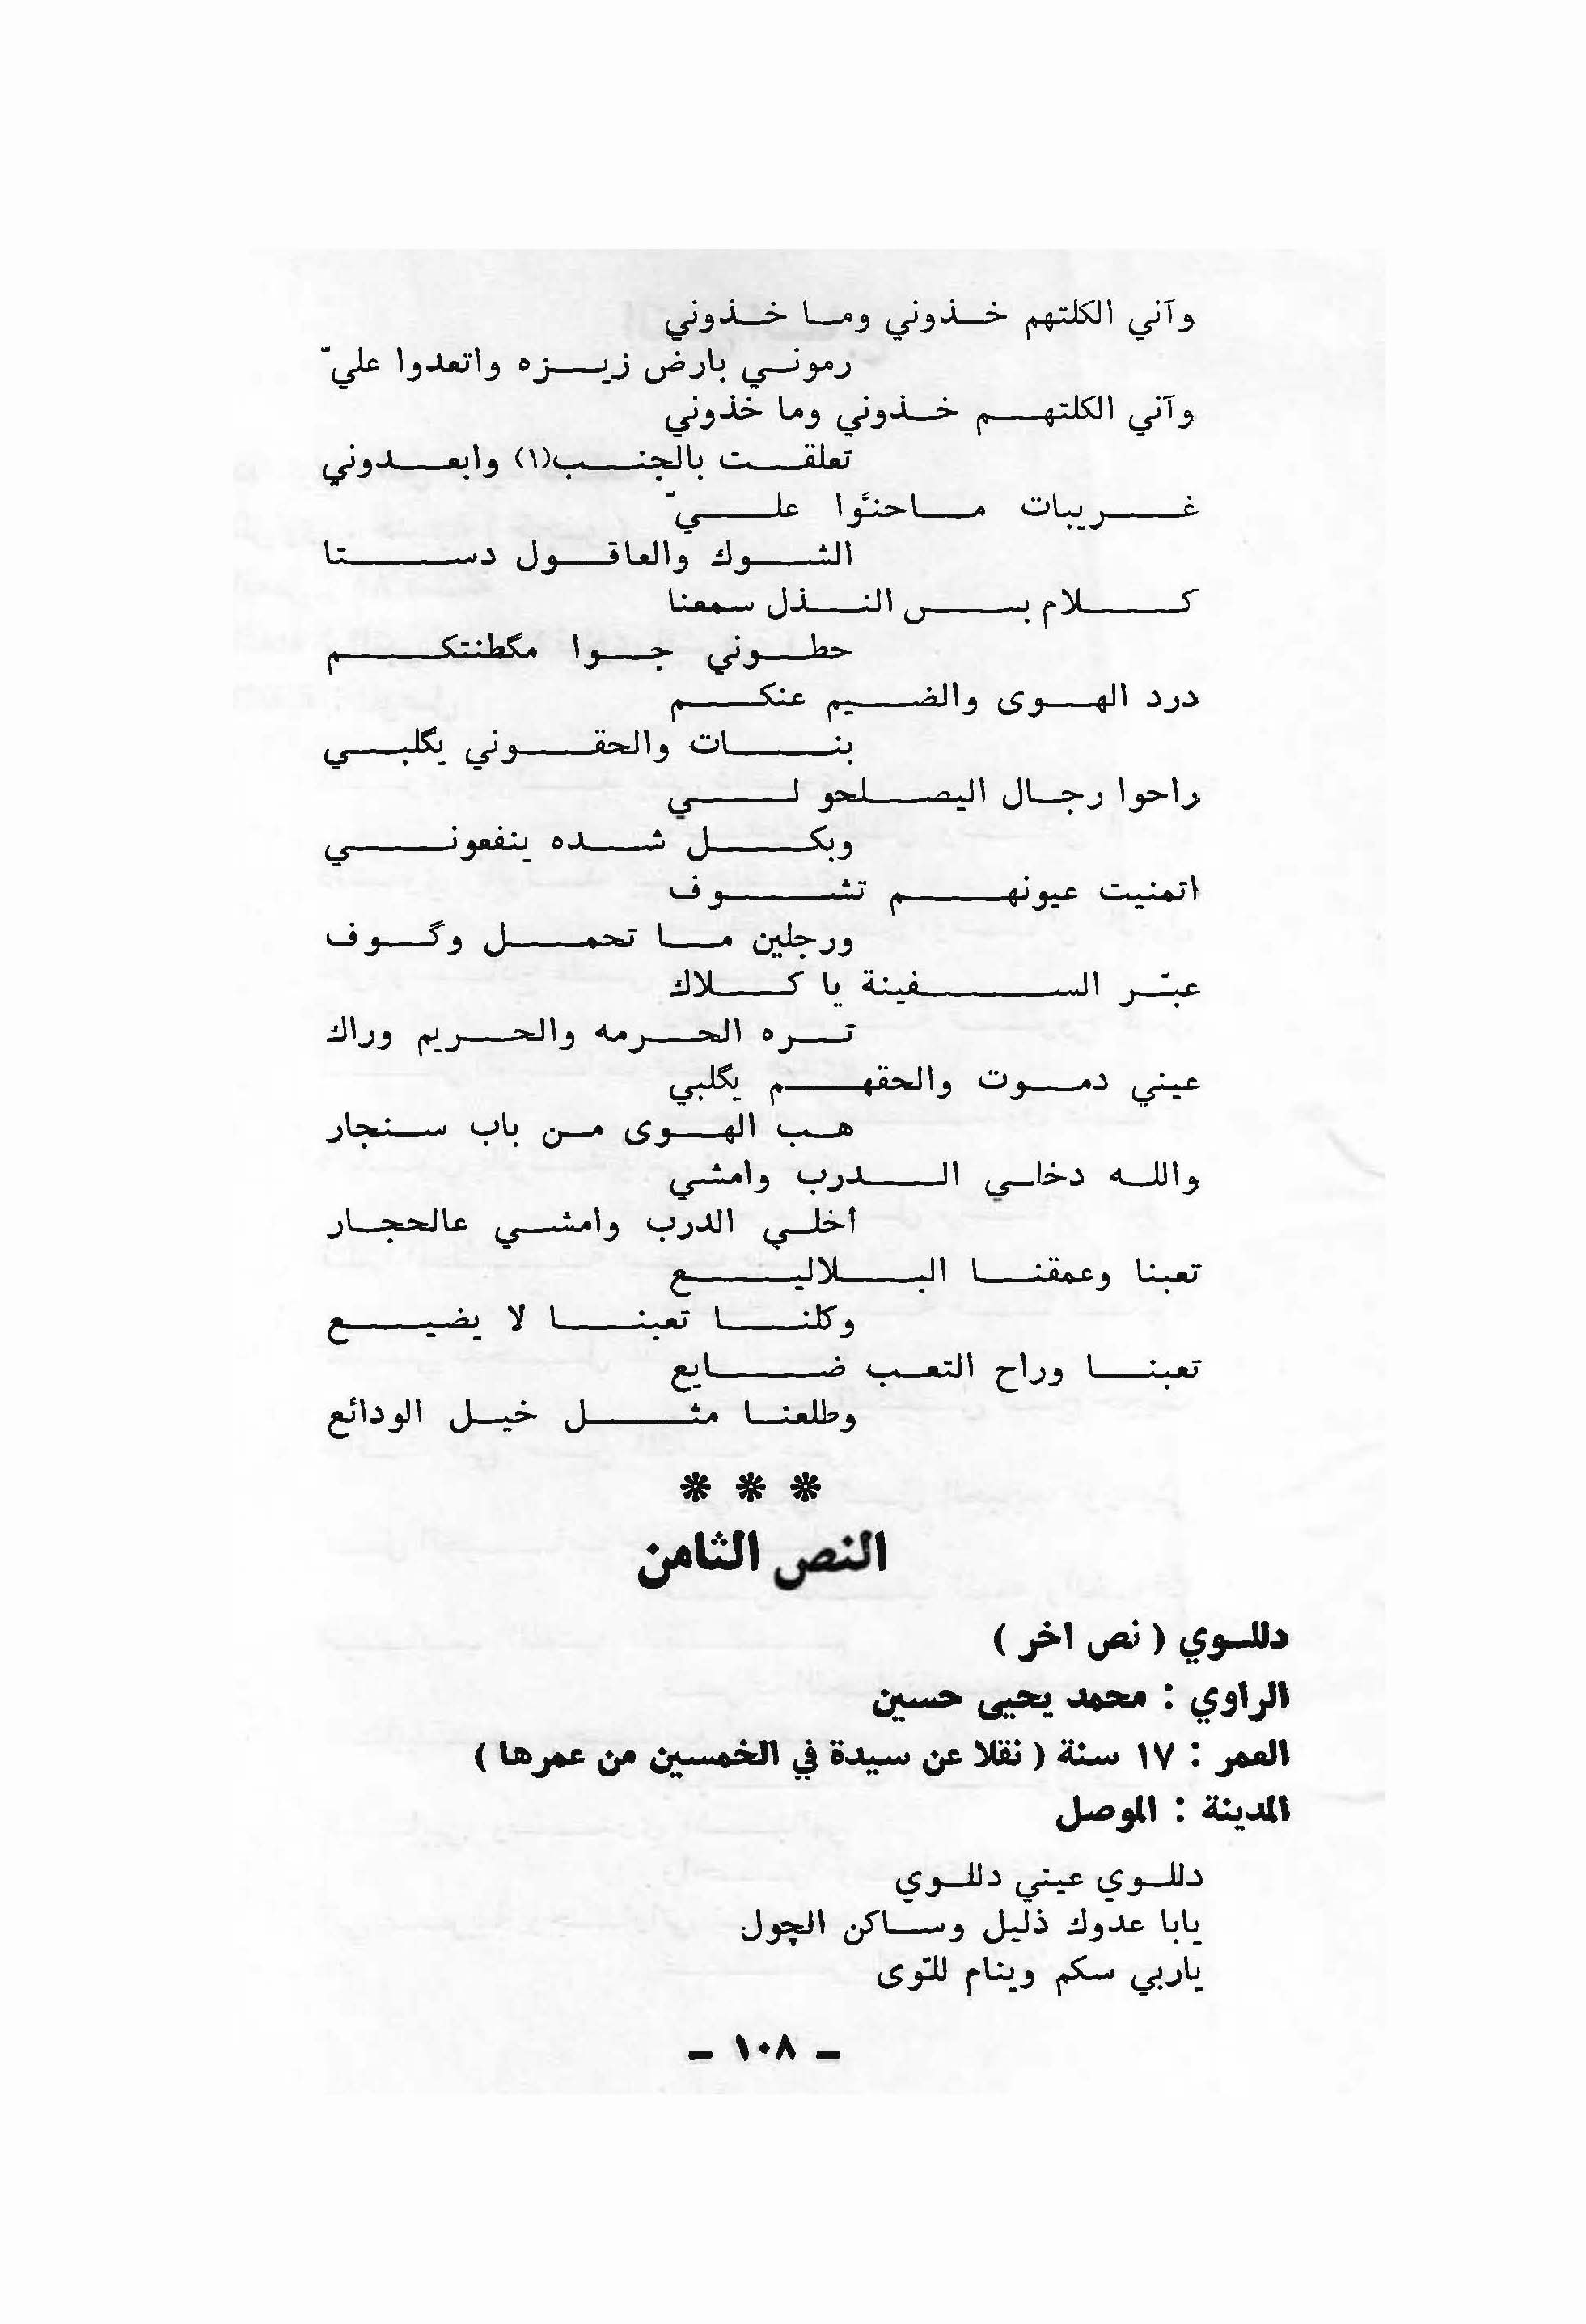 وآني الكلتهم خذوني وما خذوني
رموني بارض زيزه واتعدوا عليّ
وآني الكلتهم خذوني وما خذوني
تعلقت بالجنب(١) وابعدوني
غريبات ماحنَّوا عليّ
الشوك والعاقول دستا
كلام بس النذل سمعنا
حطوني جوا مگطنتكم
درد الهوى والضيم عنكم
بنات والحقوني يگلبي
راحوا رجال اليصلحو لي
وبكل شده ينفعوني
اتمنيت عيونهم تشوف
ورجلين ما تحمل وگوف
عبّر السفينة يا كلاك
تره الحرمه والحريم وراك
عيني دموت والحقهم يگلبي
هب الهوى من باب سنجار
والله دخلي الدرب وامشي
أخلي الدرب وامشي عالحجار
تعبنا وعمقنا البلاليع
وكلنا تعبنا لا يضيع
تعبنا وراح التعب ضايع
وطلعنا مثل خيل الودائع
* * *
النص الثامن
دللوي ( نص اخر )
الراوي : محمد يحيى حسين
العمر : ١٧ سنة ( نقلا عن سيدة في الخمسين من عمرها )
المدينة : الموصل
دللوي عيني دللوي
يابا عدوك ذليل وساكن الچول
ياربي سكم وينام للّوى
– ١٠٨ –